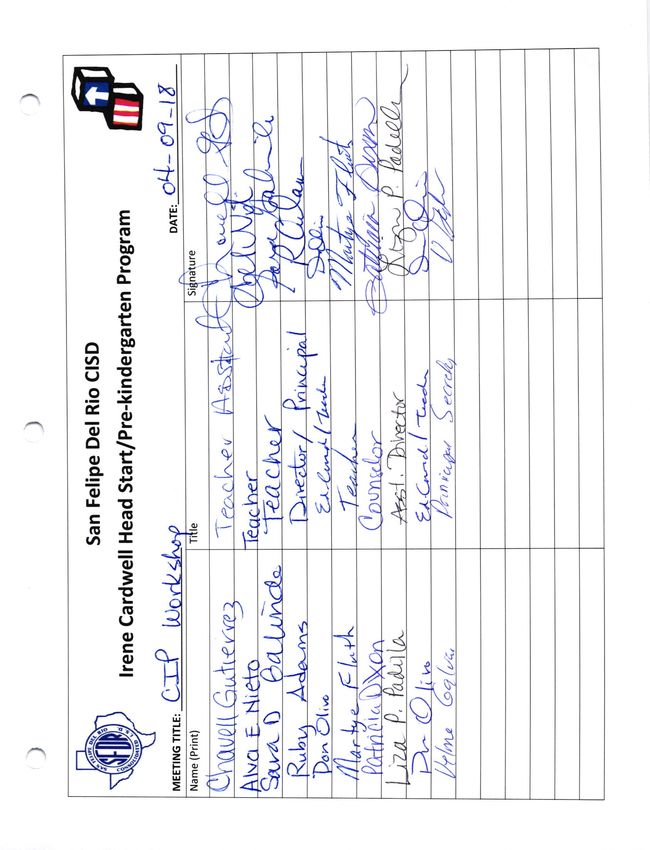 San Felipe Del Rio CISD
Irene Cardwell Head Start/Pre-kindergarten Program
SAN FELIPE DEL RIO
SFDR
CONSOLIDATED I S D
MEETING TITLE: CIP Workshop DATE: 04-09-18
Name (Print) Title Signature
Chavell Gutierrez Teacher Assistant Chavell
Alva E Nieto Teacher
Sara D Galindo Teacher Sara Galindo
Ruby Adams Director/ Principal R Adams
Don Olivo Ed Coord/Teacher
Martye Fluth Teacher Martye Fluth
Patricia Dixon Counselor Patricia Dixon
Liza P. Padilla Asst. Director Liza P. Padilla
Don Olivo Ed Coord/Teacher
Velma Galvan Principal's Secretary